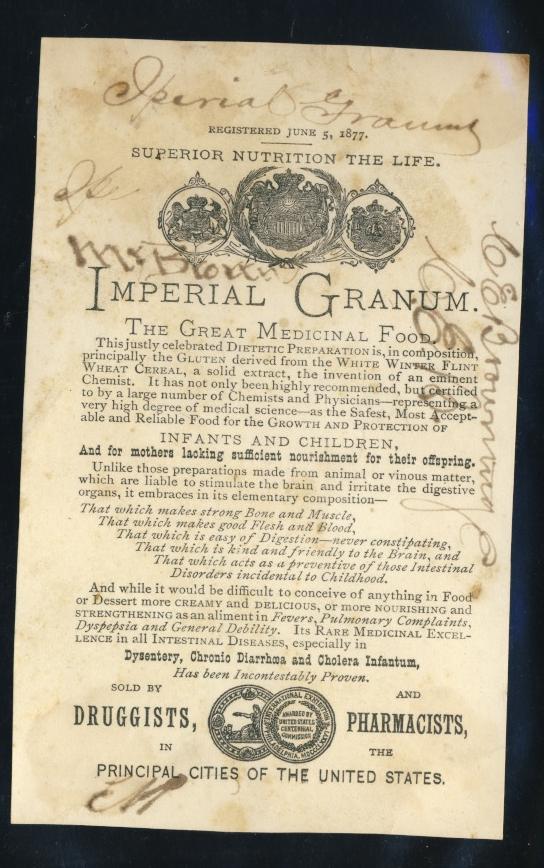 Iperial Granum
REGISTERED JUNE 5, 1877.
SUPERIOR NUTRITION THE LIFE.
Mr Brown
IMPERIAL GRANUM.
THE GREAT MEDICINAL FOOD.
This justly celebrated DIETETIC PREPARATION is, in composition,
principally the GLUTEN derived from the WHITE WINTER FLINT
WHEAT CEREAL, a solid extract, the invention of an eminent
Chemist. It has not only been highly recommended, but certified
to by a large number of Chemists and Physicians—representing a
very high degree of medical science—as the Safest, Most Accept-
able and Reliable Food for the GROWTH AND PROTECTION OF
INFANTS AND CHILDREN,
And for mothers lacking sufficient nourishment for their offspring.
Unlike those preparations made from animal or vinous matter,
which are liable to stimulate the brain and irritate the digestive
organs, it embraces in its elementary composition—
That which makes strong Bone and Muscle,
That which makes good Flesh and Blood,
That which is easy of Digestion—never constipating,
That which is kind and friendly to the Brain, and
That which acts as a preventive of those Intestinal
Disorders incidental to Childhood.
And while it would be difficult to conceive of anything in Food
or Dessert more CREAMY and DELICIOUS, or more NOURISHING and
STRENGTHENING as an aliment in Fevers, Pulmonary Complaints,
Dyspepsia and General Debility. Its RARE MEDICINAL EXCEL-
LENCE in all INTESTINAL DISEASES, especially in
Dysentery, Chronic Diarrhœa and Cholera Infantum,
Has been Incontestably Proven.
SOLD BY AND
DRUGGISTS, PHARMACISTS,
INTERNATIONAL EXHIBITION
AWARDED BY
UNITED STATES
CENTENNIAL
COMMISSION
PHILADELPHIA, MDCCCLXXVI
IN THE
PRINCIPAL CITIES OF THE UNITED STATES.
C E Browning